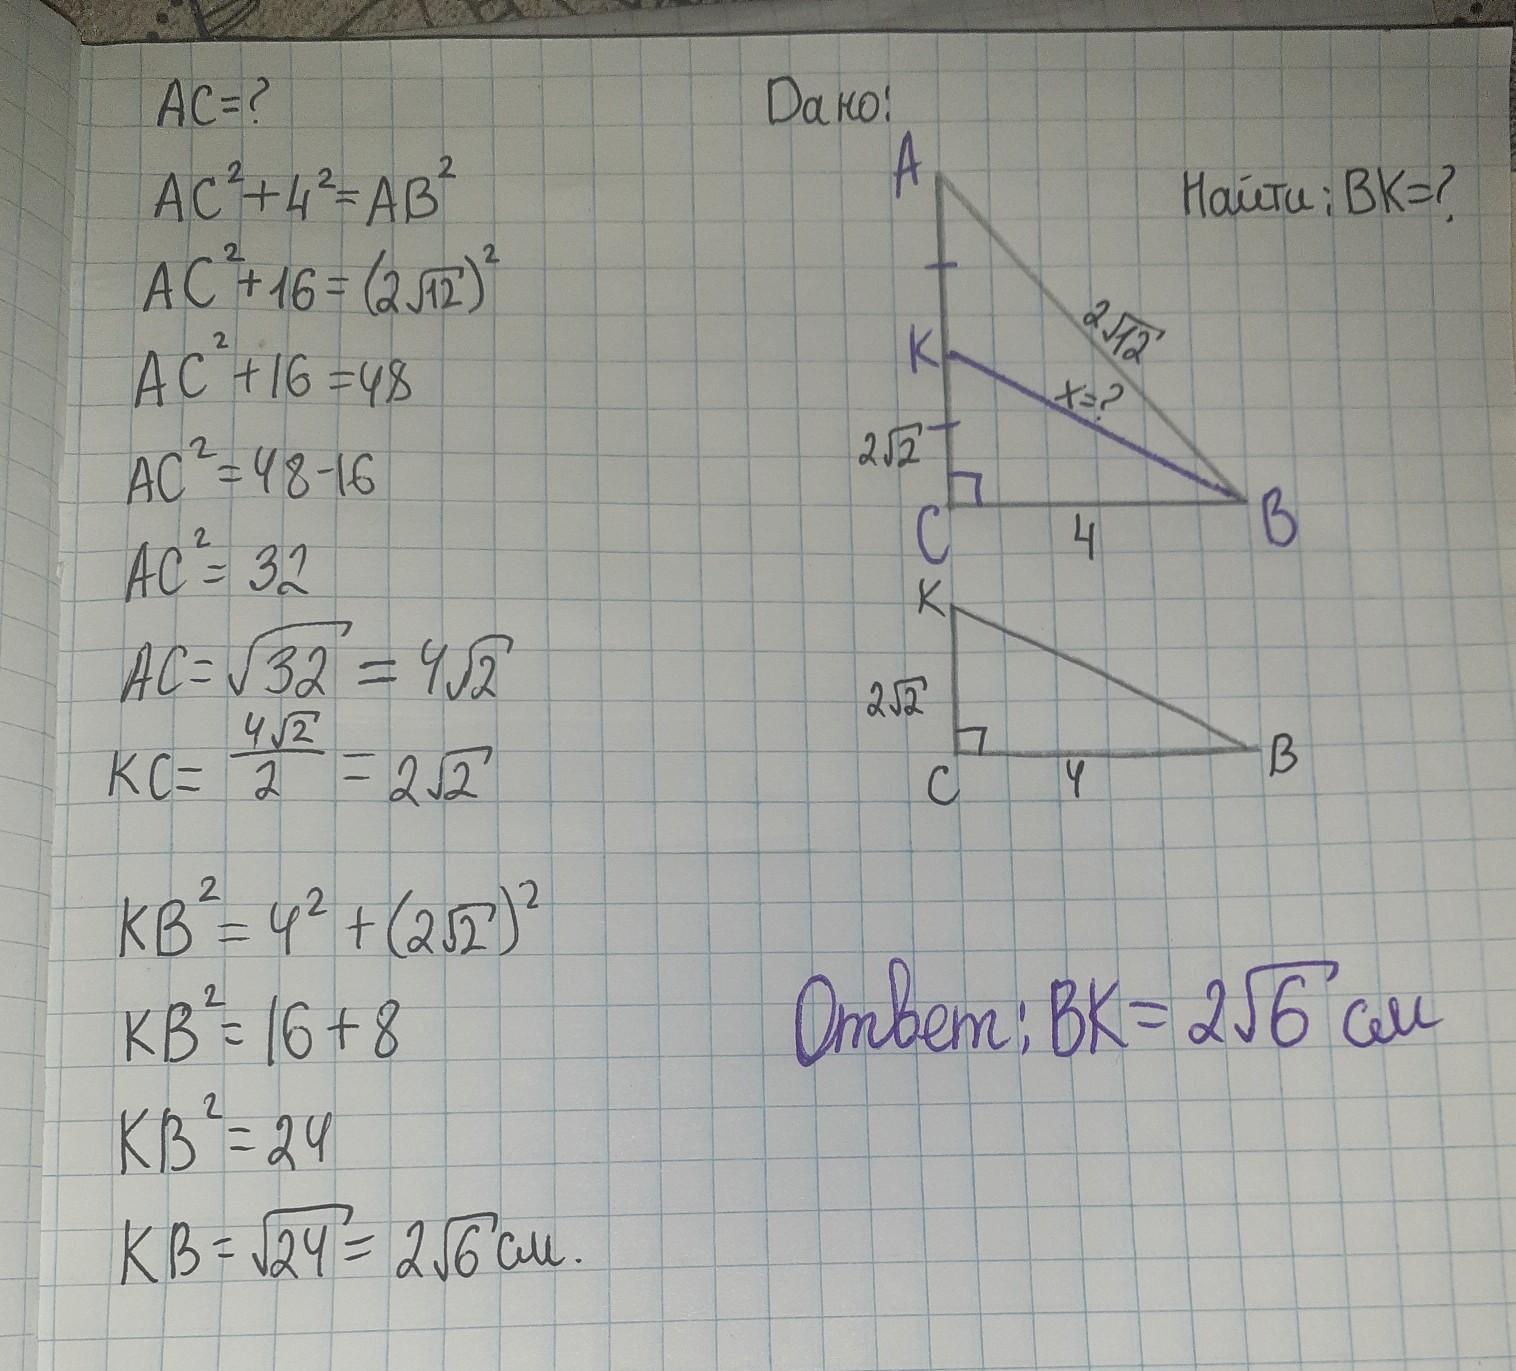 AC=?
AC²+4²=AB²
AC²+16=(2√12)²
AC²+16=48
AC²=48-16
AC²=32
AC=√32=4√2
KC=4√2/2=2√2
KB²=4²+(2√2)²
KB²=16+8
KB²=24
KB=√24=2√6 см.
Дано:
Найти: BK=?
A
2√12
K
x=?
2√2
C
4
B
K
2√2
C
4
B
Ответ: BK=2√6 см